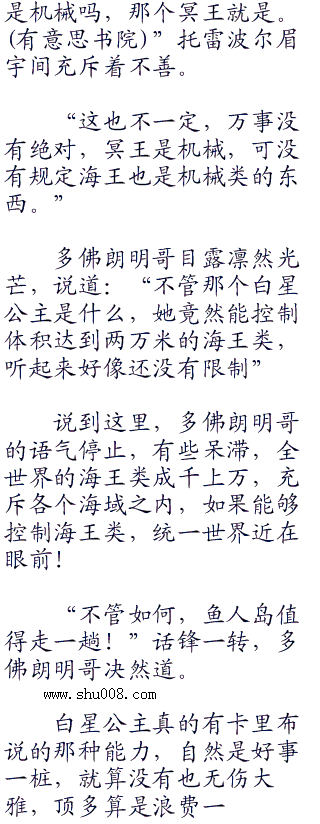 是机械吗，那个冥王就是。
(有意思书院)”托雷波尔眉
宇间充斥着不善。
“这也不一定，万事没
有绝对，冥王是机械，可没
有规定海王也是机械类的东
西。”
多佛朗明哥目露凛然光
芒，说道：“不管那个白星
公主是什么，她竟然能控制
体积达到两万米的海王类，
听起来好像还没有限制”
说到这里，多佛朗明哥
的语气停止，有些呆滞，全
世界的海王类成千上万，充
斥各个海域之内，如果能够
控制海王类，统一世界近在
眼前！
“不管如何，鱼人岛值
得走一趟！”话锋一转，多
佛朗明哥决然道。
www.shu008.com
白星公主真的有卡里布
说的那种能力，自然是好事
一桩，就算没有也无伤大
雅，顶多算是浪费一